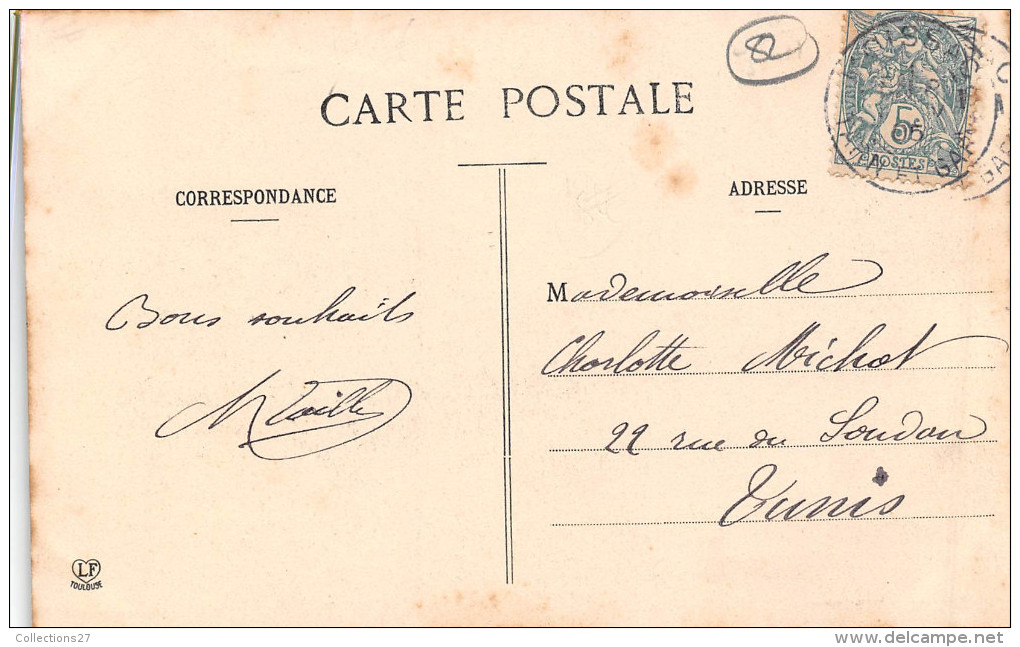 82
CARTE POSTALE
5c
POSTES
CORRESPONDANCE
ADRESSE
Bons souhaits
Mademoiselle
Charlotte Michot
22 rue du Soudan
Tunis
LF
TOULOUSE
Collections27
www.delcampe.net